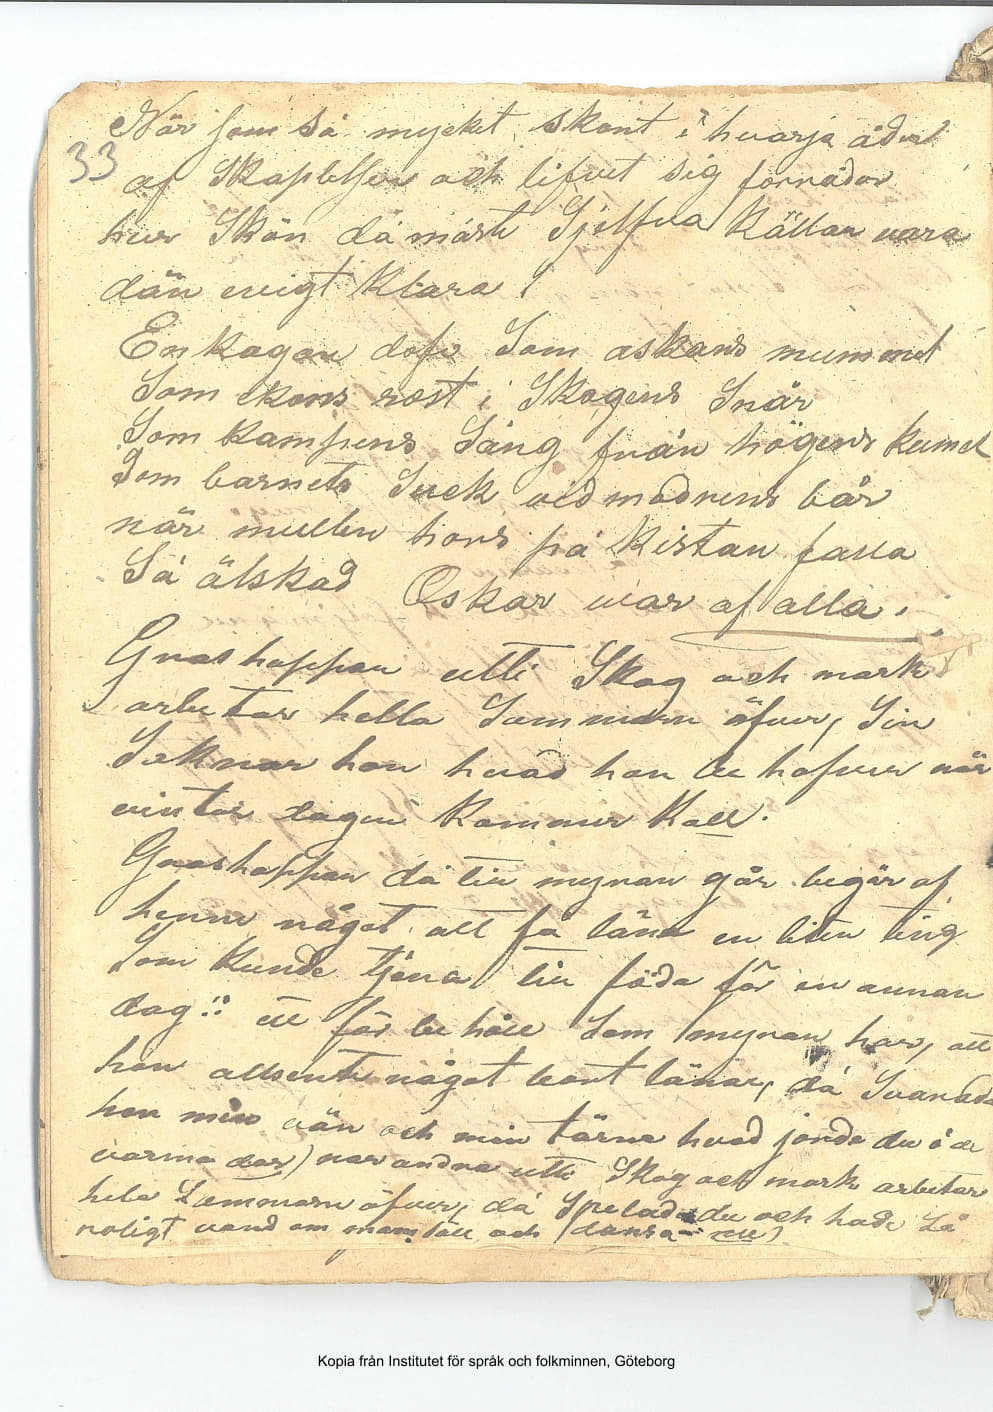 När som så mycket skönt i hvarja åder
33
af Skapelsen och lifvet sig förråder
hur Skön då måste Sjelfva Källan vara
dän evigt Klara !
En kagan dof Som askans mummel
Som ekons röst i Skogens Snår
Som kampens Sång från högens kumel
Som barnets Suck vid modrens bår
när mullen hörs på kistan falla
Så älskad Oskar war af alla .
Grashoppan utti Skog och mark
arbetar hella Sommarn öfver, Sin
Saknar han hvad han be hofver när
vinter dagen kommer Kall.
Grashoppan då till myran går begär af
henne något att få låna en liten ting
Som kunde tjena till föda för en annan
dag :: ett för be håll Som myran har, att
hon allsente något bort lånar, då Svarade
hon min vän och min tärna hvad jorde du i de
varma dar) nar andra utti Skog och mark arbetar
hela Sommarn öfver, då Spelade du och hade Så
roligt vand om mams tåll och (dansa nu)
Kopia från Institutet för språk och folkminnen, Göteborg